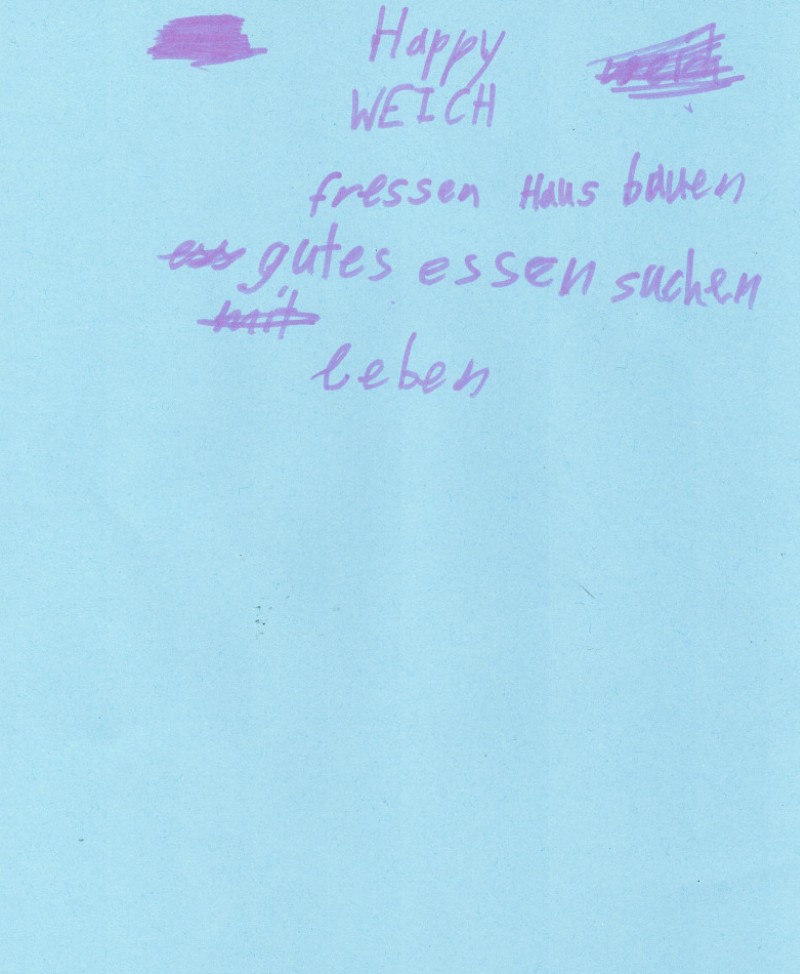 Happy
WEICH
fressen Haus bauen
gutes essen suchen
mit
leben